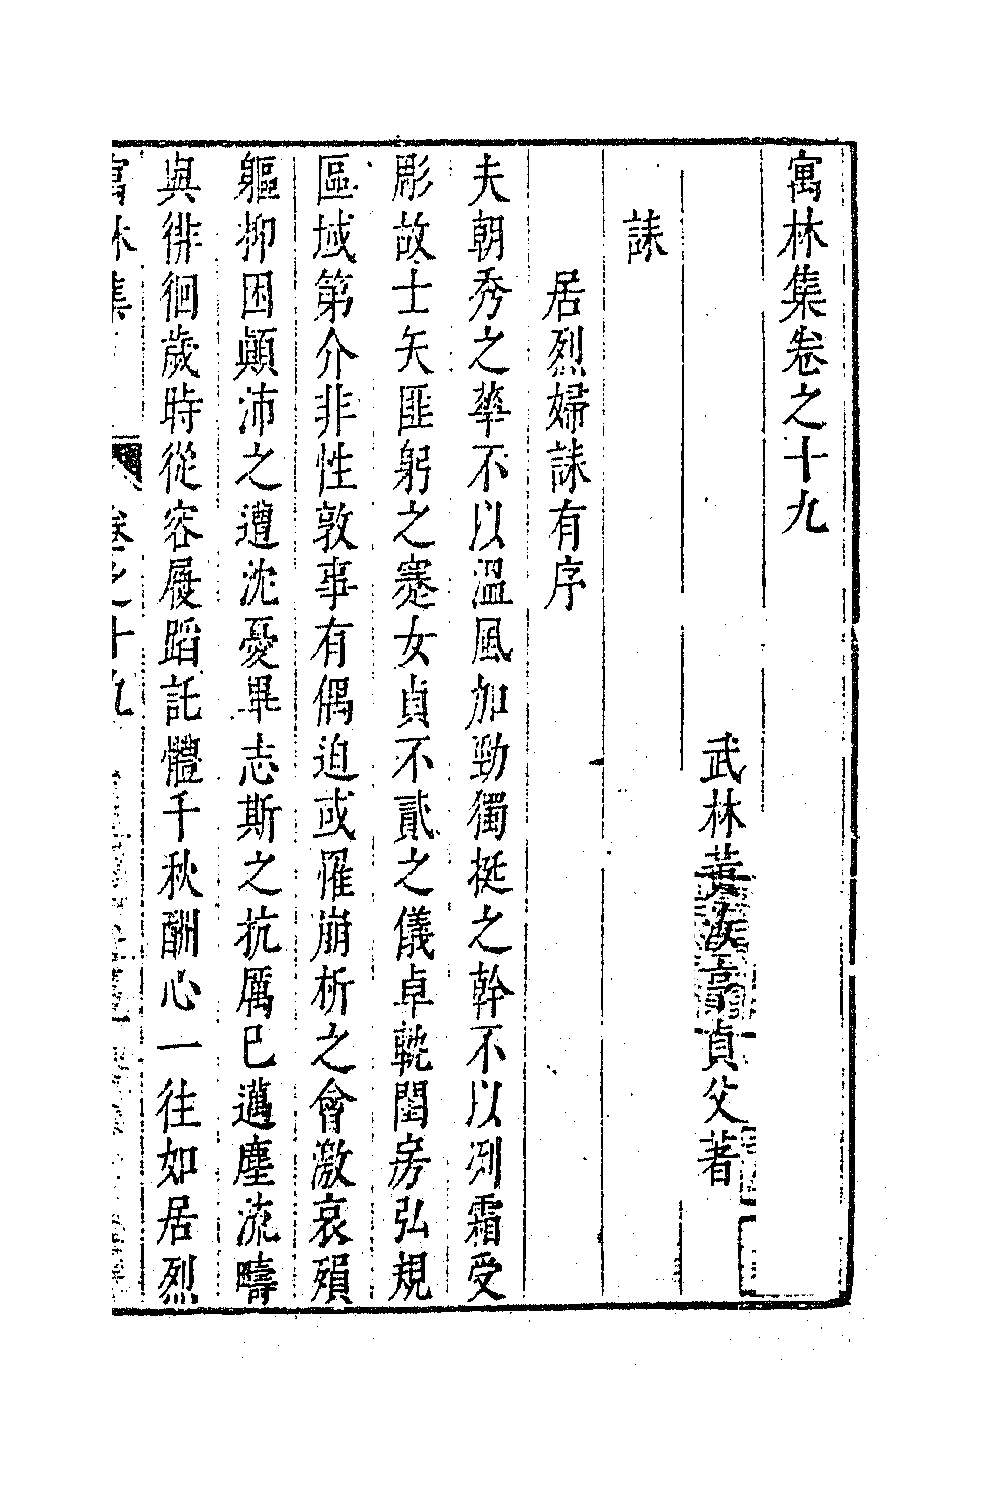 寓林集卷之十九
武林黃汝亨貞父著
誄
居烈婦誄有序
夫朝秀之蕐不以溫風加勁獨挺之幹不以冽霜受
彫故士矢匪躬之蹇女貞不貳之儀卓軶閨房弘規
區域第介非性敦事有偶迫或罹崩析之會激哀殞
軀抑困顛沛之遭沈憂畢志斯之抗厲已邁塵流疇
與徘徊歲時從容履蹈託體千秋酬心一往如居烈
寓林集
卷之十九